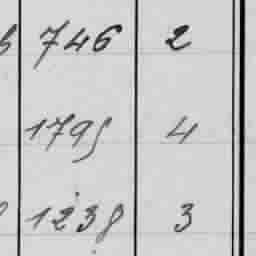 746 2
1795 4
1238 3